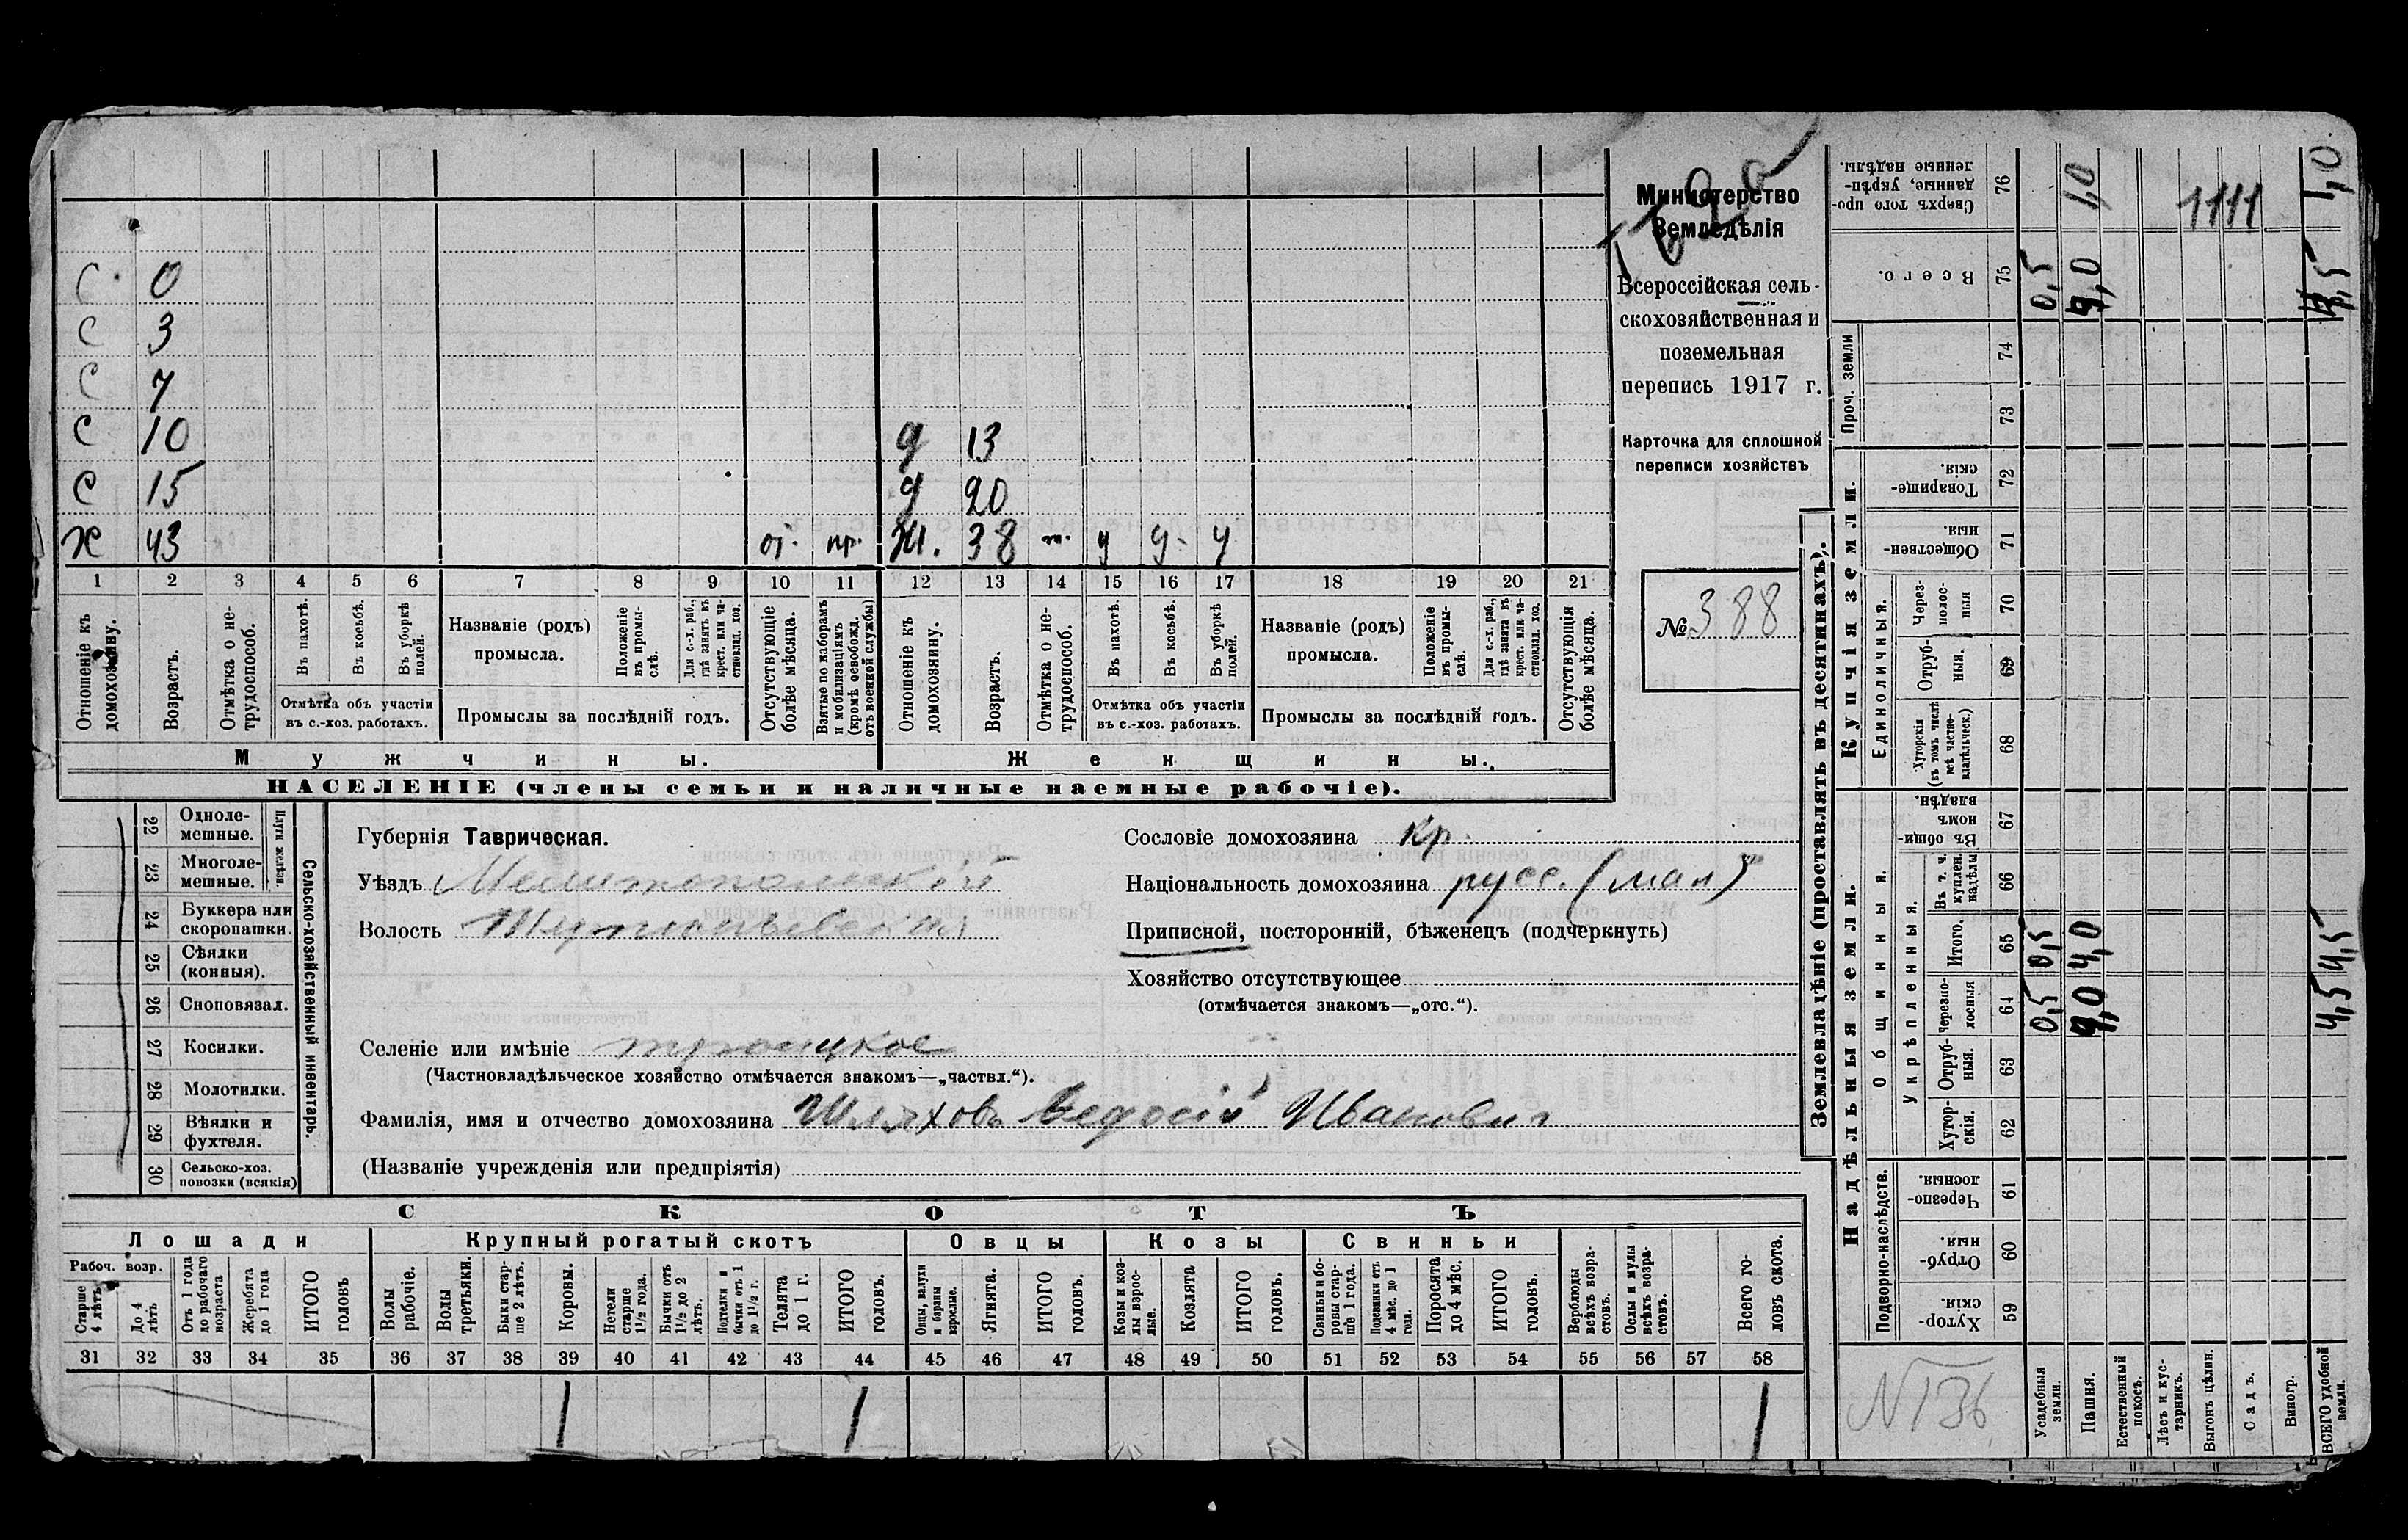 С. 0
С 3
С 7
С 10 д 13
С 15 д 20
х 43 от. пр. Ж. 38 у у. у
1 2 3 4 5 6 7 8 9 10 11 12 13 14 15 16 17 18 19 20 21
Отношеніе къ домохозяину.
Возрастъ.
Отмѣтка о не-
трудоспособ.
Въ пахотѣ.
Въ косьбѣ.
Въ уборкѣ полей.
Отмѣтка объ участіи
въ с.-хоз. работахъ.
Названіе (родъ)
промысла.
Положеніе
въ промы-
слѣ.
Для с.-х. раб.,
гдѣ занятъ въ
крест. или ча-
стновлад. хоз.
Промыслы за послѣдній годъ.
Отсутствующіе
болѣе мѣсяца.
Взятые по наборамъ
и мобилизаціямъ
(кромѣ освобожд.
отъ военной службы)
Отношеніе къ
домохозяину.
Возрастъ.
Отмѣтка о не-
трудоспособ.
Въ пахотѣ.
Въ косьбѣ.
Въ уборкѣ
полей.
Отмѣтка объ участіи
въ с.-хоз. работахъ.
Названіе (родъ)
промысла.
Положеніе
въ промы-
слѣ.
Для с.-х. раб.,
гдѣ занята въ
крест. или ча-
стновлад. хоз.
Промыслы за послѣдній годъ.
Отсутствующія
болѣе мѣсяца.
Мужчины.
Женщины.
НАСЕЛЕНІЕ (члены семьи и наличные наемные рабочіе).
Министерство
Земледѣлія
Всероссійская сель-
скохозяйственная и
поземельная
перепись 1917 г.
Карточка для сплошной
переписи хозяйствъ
№ 388
22 Одноле-
мешные.
23 Многоле-
мешные.
Плуги желѣзн.
24 Буккера или
скоропашки.
25 Сѣялки
(конныя).
26 Сноповязал.
27 Косилки.
28 Молотилки.
29 Вѣялки и
фухтеля.
30 Сельско-хоз.
повозки (всякія)
Сельско-хозяйственный инвентарь.
Губернія Таврическая.
Уѣздъ Мелитопольскій
Волость
Селеніе или имѣніе троицкое
(Частновладѣльческое хозяйство отмѣчается знакомъ—„частвл.“).
Фамилія, имя и отчество домохозяина Шляховъ Ѳедосій Ивановичъ
(Названіе учрежденія или предпріятія)
Сословіе домохозяина кр.
Національность домохозяина русс. (мал)
Приписной, посторонній, бѣженецъ (подчеркнуть)
Хозяйство отсутствующее
(отмѣчается знакомъ—„отс.“).
СКОТЪ
Лошади
Крупный рогатый скотъ
Овцы
Козы
Свиньи
Рабоч. возр.
Старше
4 лѣтъ
До 4
лѣтъ
Отъ 1 года
до рабочаго
возраста
Жеребята
до 1 года
ИТОГО
головъ
Волы
рабочіе.
Волы
третьяки.
Быки стар-
ше 2 лѣтъ.
Коровы.
Нетели
старше
1½ года.
Бычки отъ
1½ до 2
лѣтъ.
Подтелки и
бычки отъ 1
до 1½ г.
Телята
до 1 г.
ИТОГО
головъ.
Овцы, валухи
и бараны
взрослые.
Ягнята.
ИТОГО
головъ.
Козы и коз-
лы взрос-
лые.
Козлята
ИТОГО
головъ.
Свиньи и бо-
ровы стар-
ше 1 года.
Подсвинки отъ
4 мѣс. до 1
года.
Поросята
до 4 мѣс.
ИТОГО
головъ.
Верблюды
всѣхъ возра-
стовъ.
Ослы и мулы
всѣхъ возра-
стовъ.
Всего го-
ловъ скота.
31 32 33 34 35 36 37 38 39 40 41 42 43 44 45 46 47 48 49 50 51 52 53 54 55 56 57 58
1 1 1
Землевладѣніе (проставлять въ десятинахъ).
Сверхъ того про-
данные, укрѣп-
ленные надѣлы.
76 1,0 1111 1,0
Всего.
75 0,5
Проч. земли
74
73
Купчія земли.
Товарище-
скія.
72
Обществен-
ныя.
71
Единоличныя.
Через-
полос-
ныя
70
Отруб-
ныя.
69
Хуторскія
(въ томъ числѣ
всѣ частно-
владѣльческ.)
68
Надѣльныя земли.
Общинныя.
Въ общи-
номъ
владѣн.
67
Укрѣпленныя.
Въ т. ч.
куплен.
надѣлы
66
Итого.
65 0,5 4,0 4,5
Черезпо-
лосныя
64 0,5 4,0 4,5
Отруб-
ныя.
63
Хутор-
скія.
62
Подворно-наслѣдств.
Черезпо-
лосныя.
61
Отруб-
ныя.
60
Хутор-
скія.
59
N 136
Усадебныя
земли.
Пашня.
Естественный
покосъ.
Лѣсъ и кус-
тарникъ.
Выгонъ цѣлин.
Садъ.
Виногр.
ВСЕГО удобной
земли.